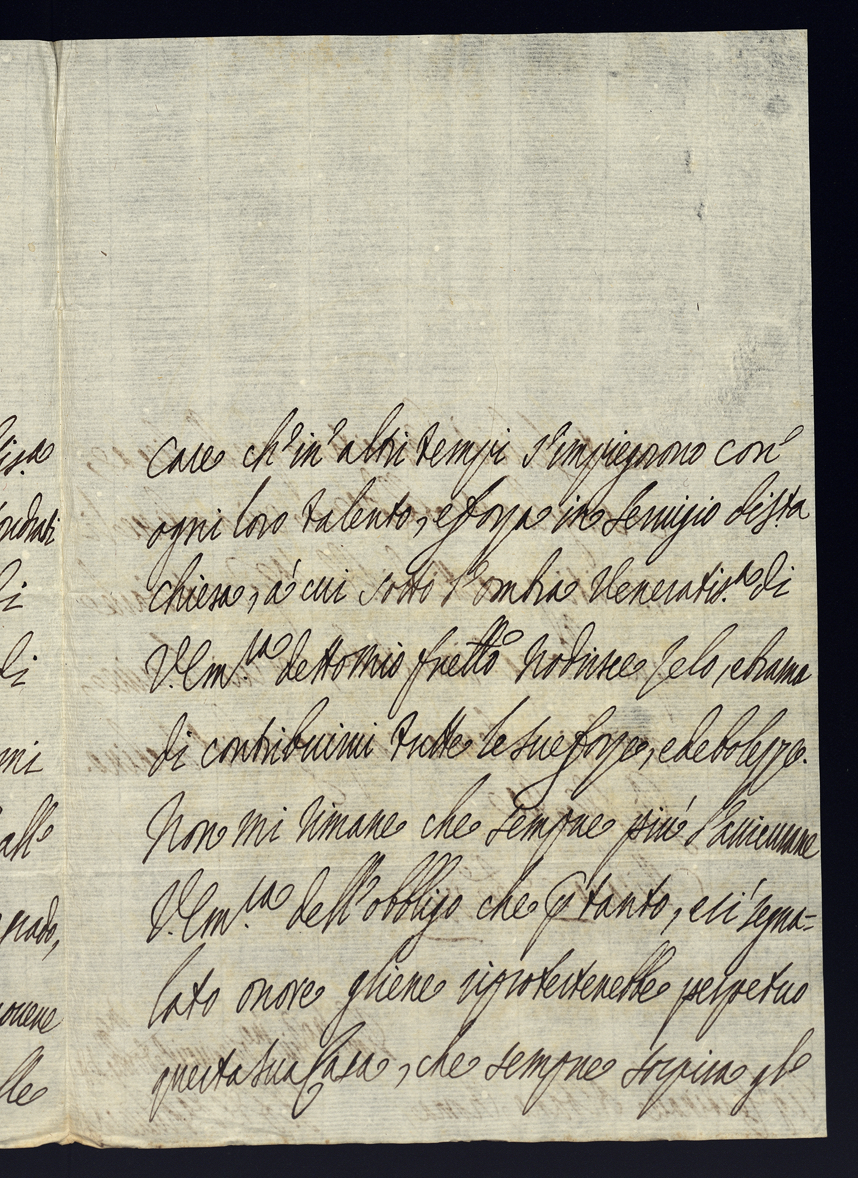 Case ch' in' altri tempi s'impiegorono con'
ogni loro talento, e forza in servizio di s.ta
chiesa, à cui sotto l'ombra Veneratis.ma di
V. Em.za detto mio frettô nodrisce zelo, e brama
di contribuirvi tutte le sue forze, e debolezze.
Non mi rimane che sempre più l'assicurare
V. Em.za dell'obbligo che p tanto, e sì segna-
lato onore gliene riprotesterebbe perpetuo
questa sua Casa, che sempre sospira gl'